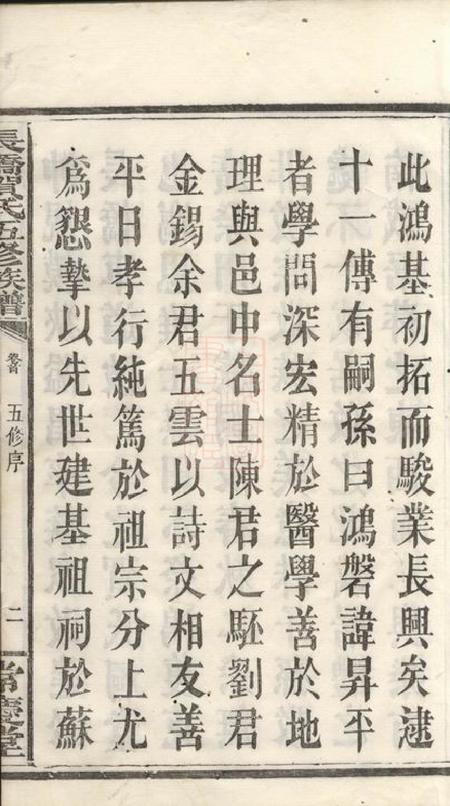 此鴻基初拓而駿業長興矣逮
十一傳有嗣孫曰鴻磐諱昇平
者學問深宏精於醫學善於地
理與邑中名士陳君之駓劉君
金錫余君五雲以詩文相友善
平日孝行純篤於祖宗分上尤
爲懇摯以先世建基祖祠於蘇
長橋賀氏五修族譜
卷首
五修序
二
常慶堂